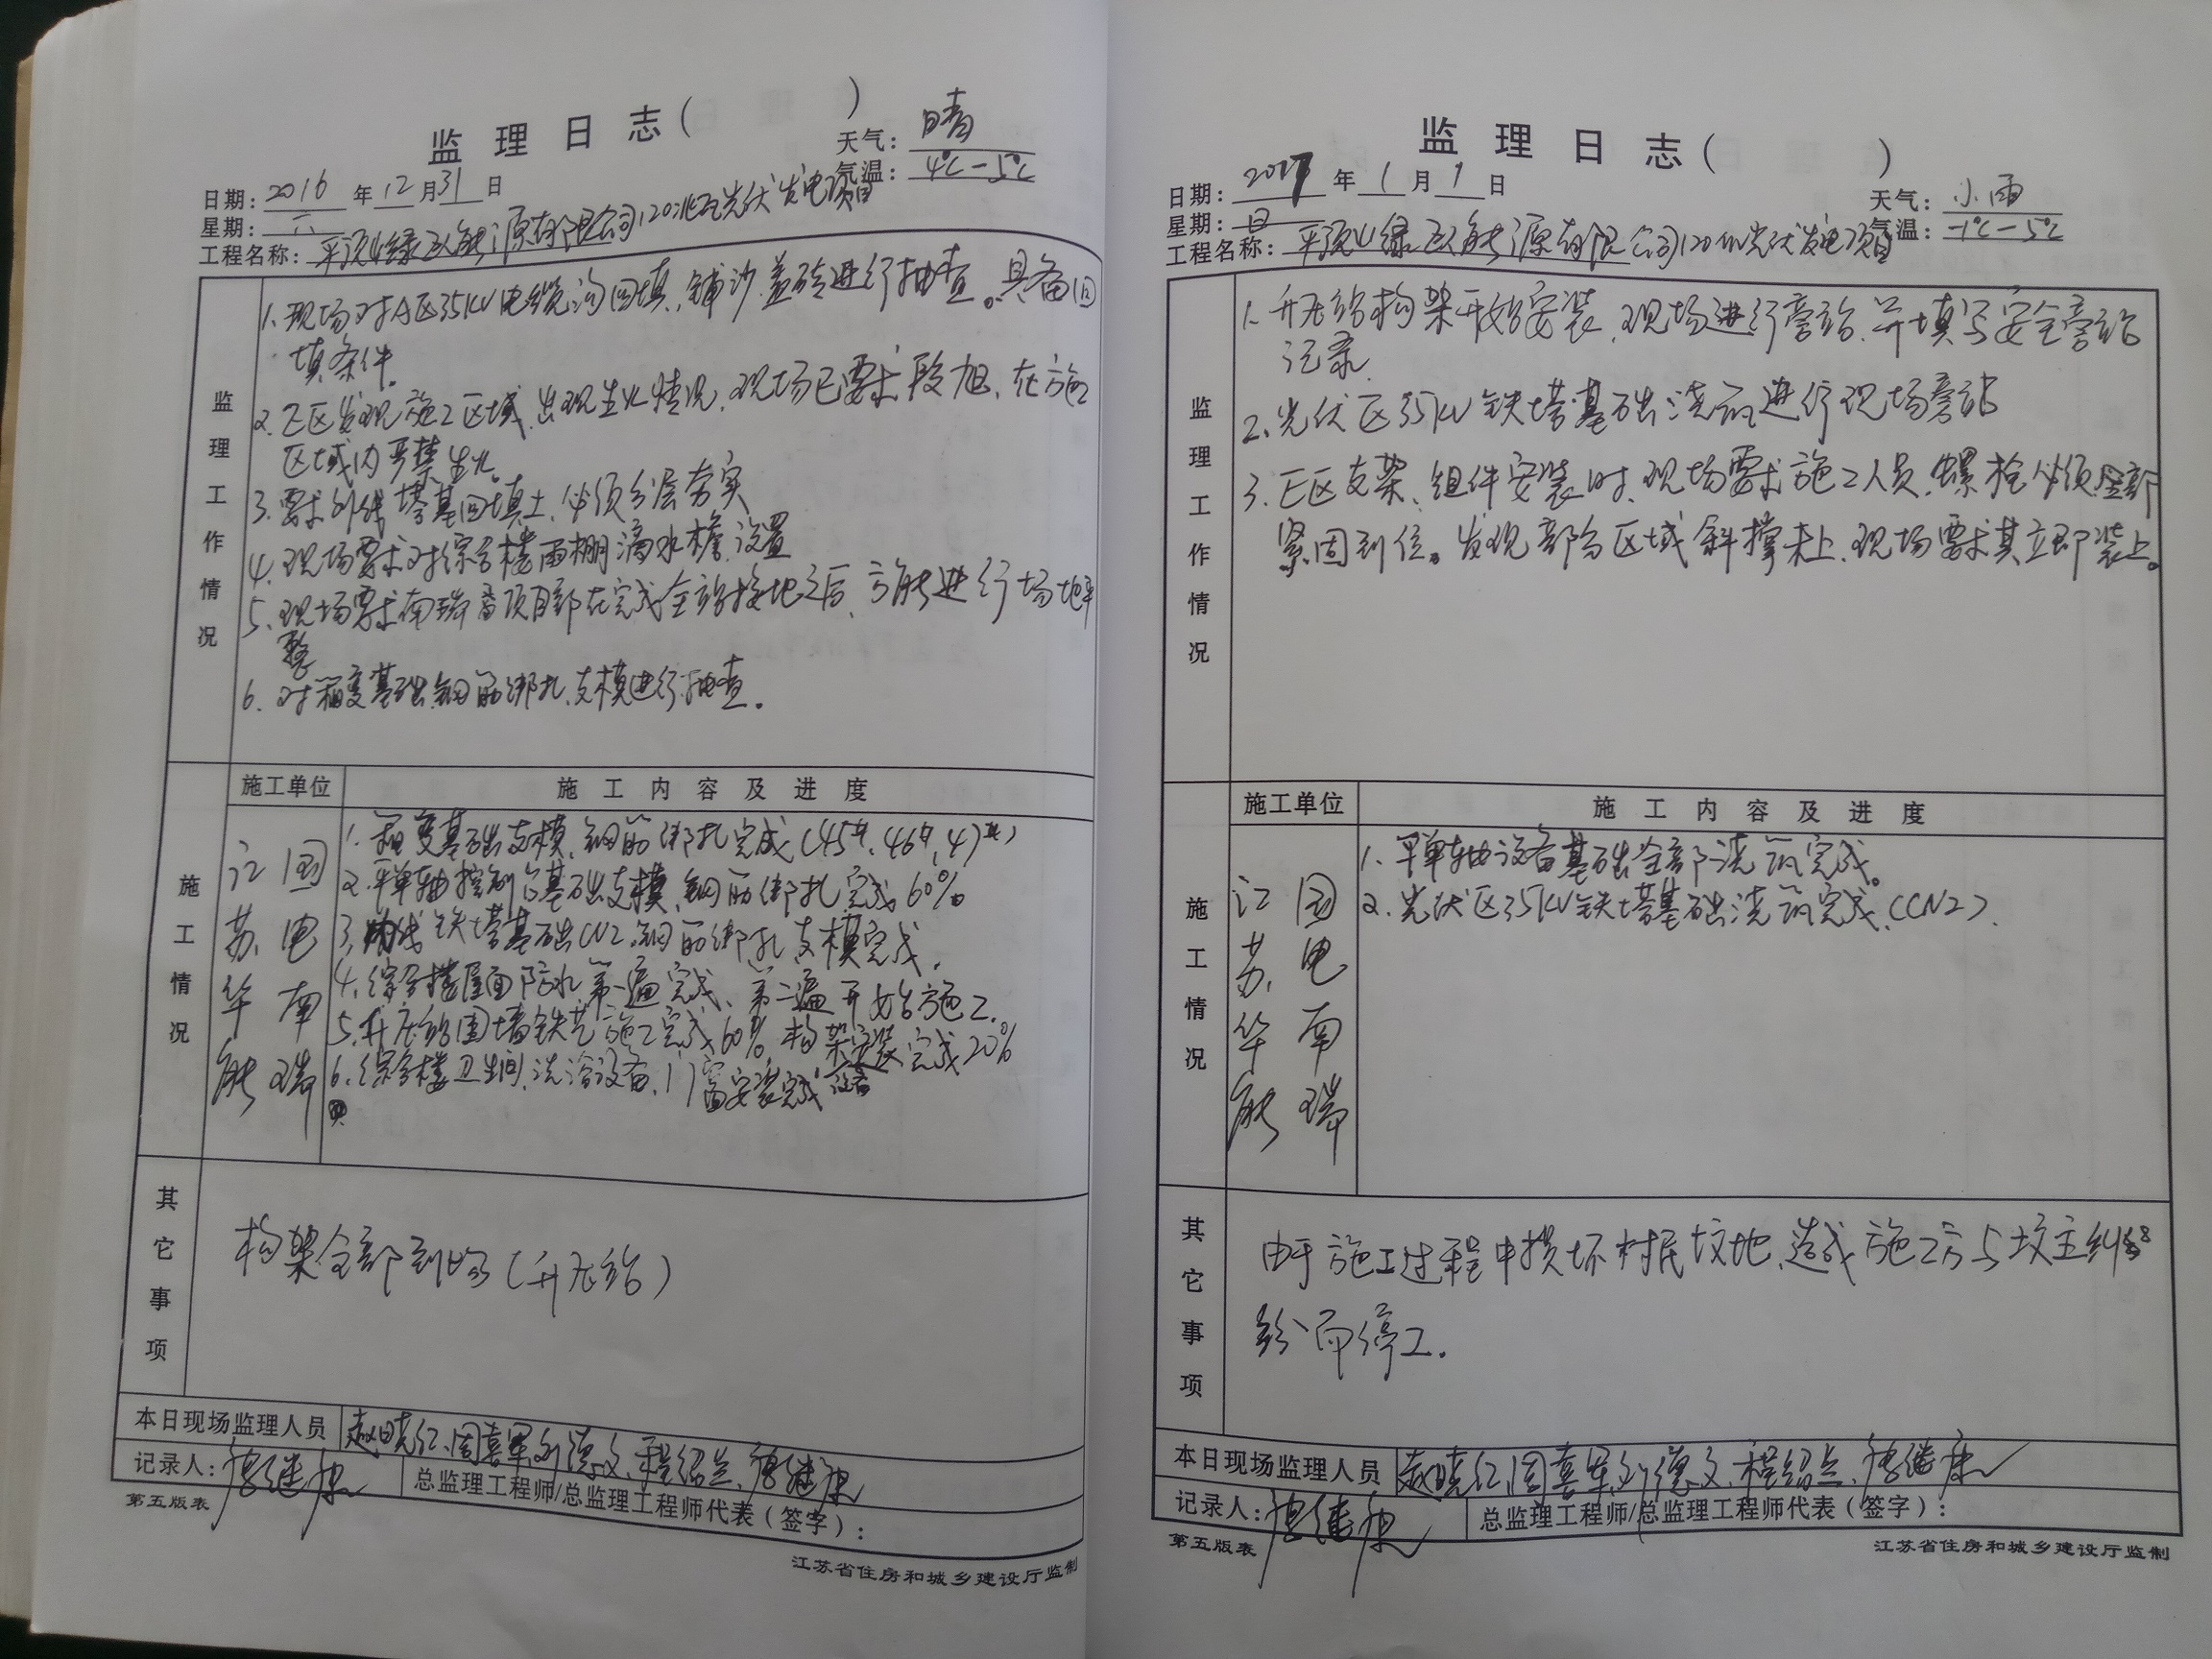 监理日志（　　　）
天气：晴
日期：2016年12月31日
气温：4℃-5℃
星期：六
工程名称：平顶山绿巨人能源有限公司120兆瓦光伏发电项目
监理工作情况
1.现场对A区35KV电缆沟回填、铺沙、盖砖进行抽查。具备回
填条件。
2.E区发现施工区域出现生火情况,现场已要求段旭,在施工
区域内严禁生火。
3.要求外线塔基回填土,必须分层夯实
4.现场要求对综合楼雨棚滴水檐设置
5.现场要求南瑞 项目部在完成全站接地之后、方能进行场地平
整
6.对箱变基础钢筋绑扎、支模进行抽查。
施工情况
施工单位
施工内容及进度
江苏华能
国电南瑞
1.箱变基础支模、钢筋绑扎完成(45#、46#、
2.平单轴控制 基础支模、钢筋绑扎完成60%
3. 线铁塔基础CN2钢筋绑扎支模完成.
4.综合楼屋面防水第一遍完成、第二遍开始施工.
5.升压站围墙铁艺施工完成60%,构架安装完成20%
6.综合楼卫生间、洗浴设备、门窗安装完成 设备
其它事项
构架全部到场(升压站)
本日现场监理人员 赵晓仁、周喜军、刘德文、程绍兵、唐继康
记录人：唐继康
总监理工程师/总监理工程师代表（签字）：
第五版表
江苏省住房和城乡建设厅监制
监理日志（　　　）
日期：2017年1月1日
天气：小雨
星期：日
气温：-1℃-5℃
工程名称：平顶山绿巨人能源有限公司120 光伏发电项目
监理工作情况
1.升压站构架开始安装,现场进行旁站.并填写安全旁站
记录.
2.光伏区35KV铁塔基础浇筑进行现场旁站
3.E区支架、组件安装时,现场要求施工人员,螺栓必须全部
紧固到位。发现部分区域斜撑未上,现场要求其立即装上。
施工情况
施工单位
施工内容及进度
江苏华能
国电南瑞
1.平单轴设备基础全部浇筑完成。
2.光伏区35KV铁塔基础浇筑完成.(CN2).
其它事项
由于施工过程中损坏村民坟地,造成施工方与坟主纠
纷而停工.
本日现场监理人员 赵晓仁、周喜军、刘德文、程绍兵、唐继康
记录人：唐继康
总监理工程师/总监理工程师代表（签字）：
第五版表
江苏省住房和城乡建设厅监制